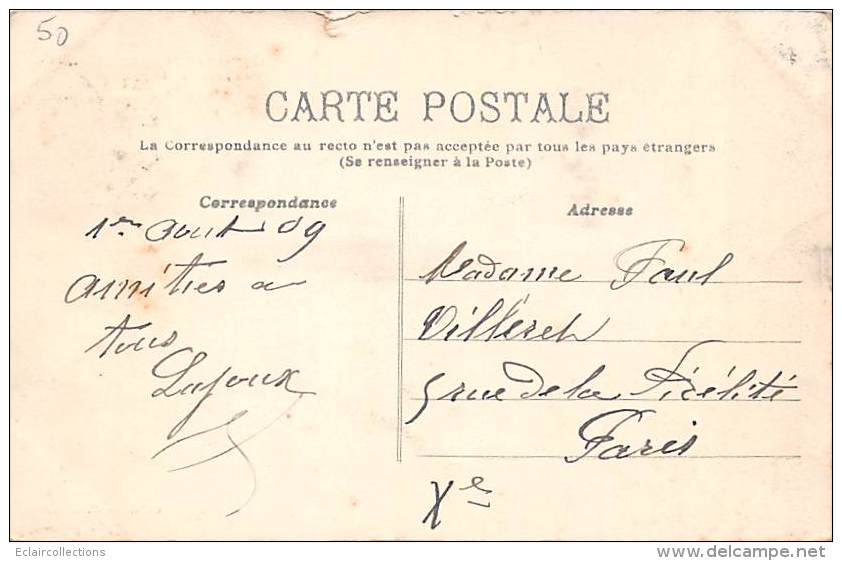 50
CARTE POSTALE
La Correspondance au recto n'est pas acceptée par tous les pays étrangers
(Se renseigner à la Poste)
Correspondance
1er Aout 09
Amitiés a
tous
Lajoux
Adresse
Madame Paul
Villerch
5 rue de la Fidélité
Paris
Xe
Eclaircollections
www.delcampe.net